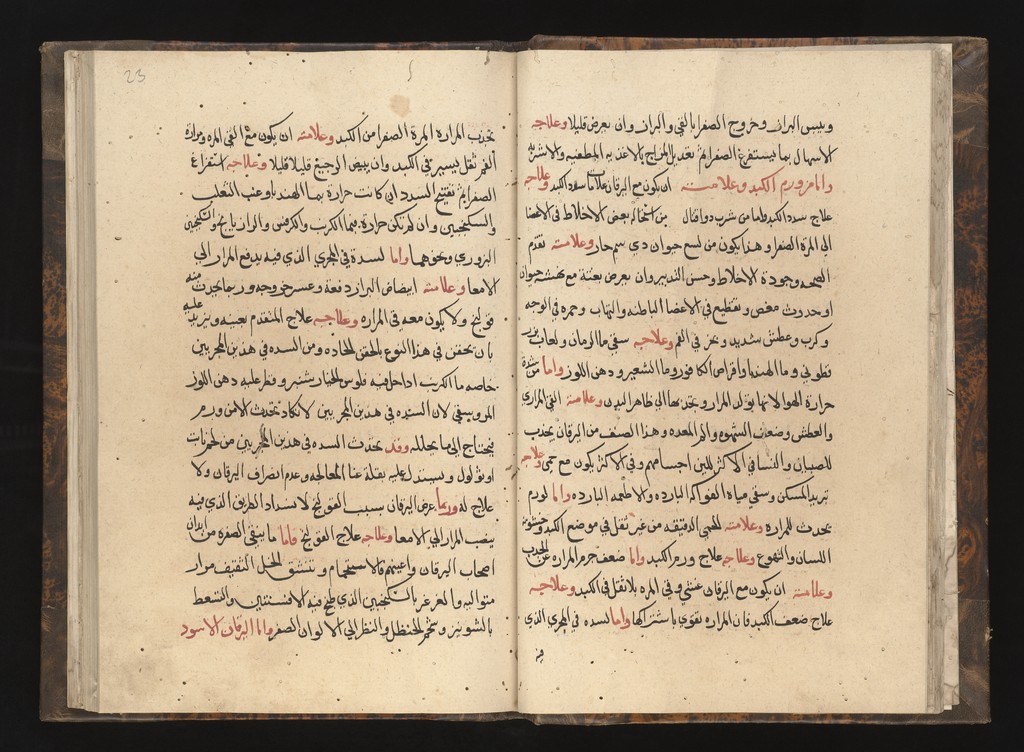 ويبس البراز وخروج الصفرا بالقي والبراز وان يعرض قليلا وعلاجه
الاسهال بما يستفرغ الصفرا ثم تعديل المزاج بالاغذيه المطفيه والاشربه
واما من ورم الكبد وعلامته ان يكون مع اليرقان علامات سدد الكبد وعلاجه
علاج سدد الكبد واما من شرب دوا قتال من استحاله بعض الاخلاط في الاعضا
الى المرة الصفرا وهذا يكون من لسع حيوان ذي سم حار وعلامته تقدم
الصحه وجودة الاخلاط وحسن التدبير وان يعرض بغتة مع نهشة حيوان
او حدوث مغص وتقطيع في الاعضا الباطنه والتهاب وحمره في الوجه
وكرب وعطش شديد وبخر في الفم وعلاجه سقي ما الرمان ولعاب بزر
قطوني وما الهندبا واقراص الكافور وما الشعير ودهن اللوز واما من شدة
حرارة الهوا لانها تولد المرار وتجذبها الي ظاهر البدن وعلامته القي المراري
والعطش وضعف الشهوه والم المعده وهذا الصنف من اليرقان يحدث
للصبيان والنسا في الاكثر للين اجسامهم وفي الاكثر يكون مع حمى وعلاجه
تبريد المسكن وسقي مياه الفواكه البارده والاطعمه البارده واما لورم
يحدث للمراره وعلامته الحمى الدقيقه من غير ثقل في موضع الكبد وخشونة
اللسان والتهوع وعلاجه علاج ورم الكبد واما ضعف جرم المراره عن الجذب
وعلامته ان يكون مع اليرقان غثي وقي المره بلا ثقل في الكبد وعلاجه
علاج ضعف الكبد فان المراره تقوي باشتراكها واما لسده في المجري الذي
فيه
23
تجذب المرارة المرة الصفرا من الكبد وعلامته ان يكون مع القي المره ومرارة
الفم ثقل يسير في الكبد وان يبيض الرجيع قليلا قليلا وعلاجه استفراغ
الصفرا ثم تفتيح السدد ان كانت حرارة بما الهندبا وعنب الثعلب
والسكنجبين وان لم تكن حرارة فبما الكرنب والكرفس والرازيانج والسكنجبين
البزوري ونحوهما واما لسدة في المجري الذي فيه يدفع المرار الي
الامعا وعلامته ابيضاض البراز دفعة وعسر خروجه وربما حدث منه
قولنج ولا يكون معه في المراره وعلاجه علاج المتقدم بعينه ويزيد عليه
بان يحتقن في هذا النوع بالحقن الحاده ومن السده في هذين المجريين
خاصه ما الكرنب اذا حل فيه فلوس الخيار شنبر وقطر عليه دهن اللوز
المر ويسقي لان السدد في هذين المجريين لا تكاد تحدث الا من ورم
فيحتاج الي ما يحلله وقد يحدث السده في هذين المجريين من لحم نابت
او ثولول ويستدل عليه بقلة غنا المعالجه وعدم انصراف اليرقان ولا
علاج له وربما عرض اليرقان بسبب القولنج لانسداد الطريق الذي فيه
ينصب المرار الي الامعا وعلاجه علاج القولنج فاما ما يبقي الصفره من ابدان
اصحاب اليرقان واعينهم فالاستحمام وتنشق الخل الثقيف مرار
متواليه والغرغر بالسكنجبين الذي طبخ فيه الافسنتين والتسعط
بالشونيز وشحم الحنظل والنظر الي الالوان الصفر واما اليرقان الاسود